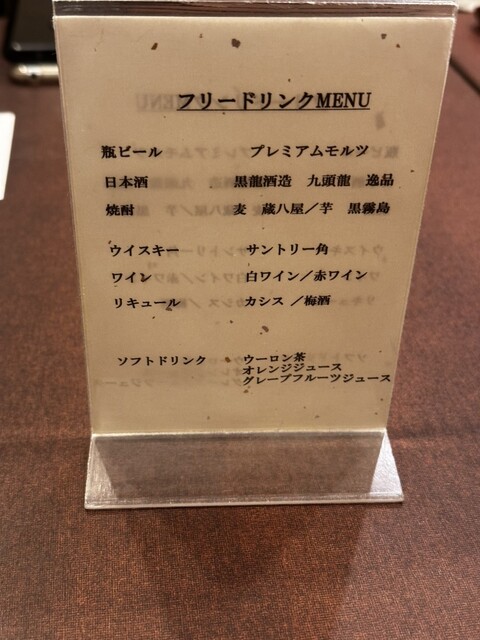 フリードリンクMENU
瓶ビール プレミアムモルツ
日本酒 黒龍酒造 九頭龍 逸品
焼酎 麦 蔵八屋／芋 黒霧島
ウイスキー サントリー角
ワイン 白ワイン／赤ワイン
リキュール カシス ／梅酒
ソフトドリンク ウーロン茶
オレンジジュース
グレープフルーツジュース